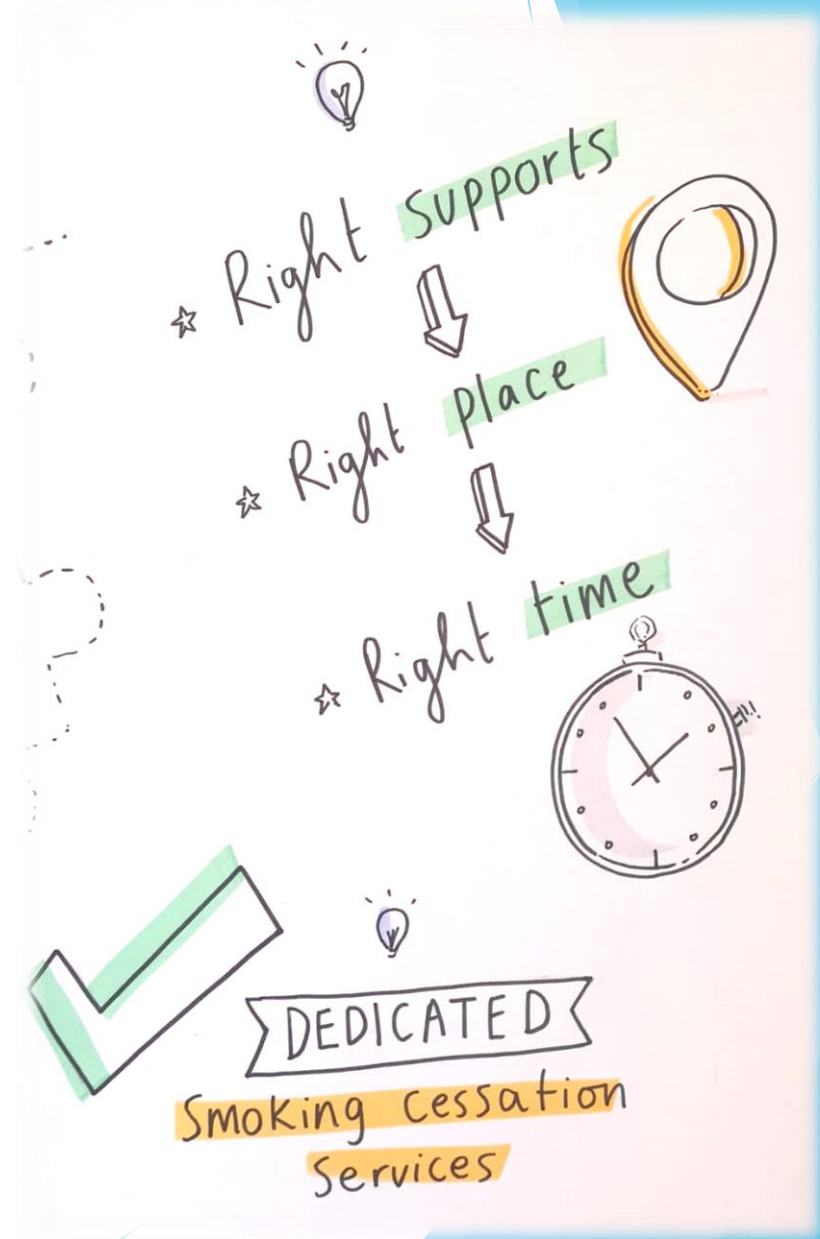 Right supports
Right place
Right time
DEDICATED
Smoking cessation
Services